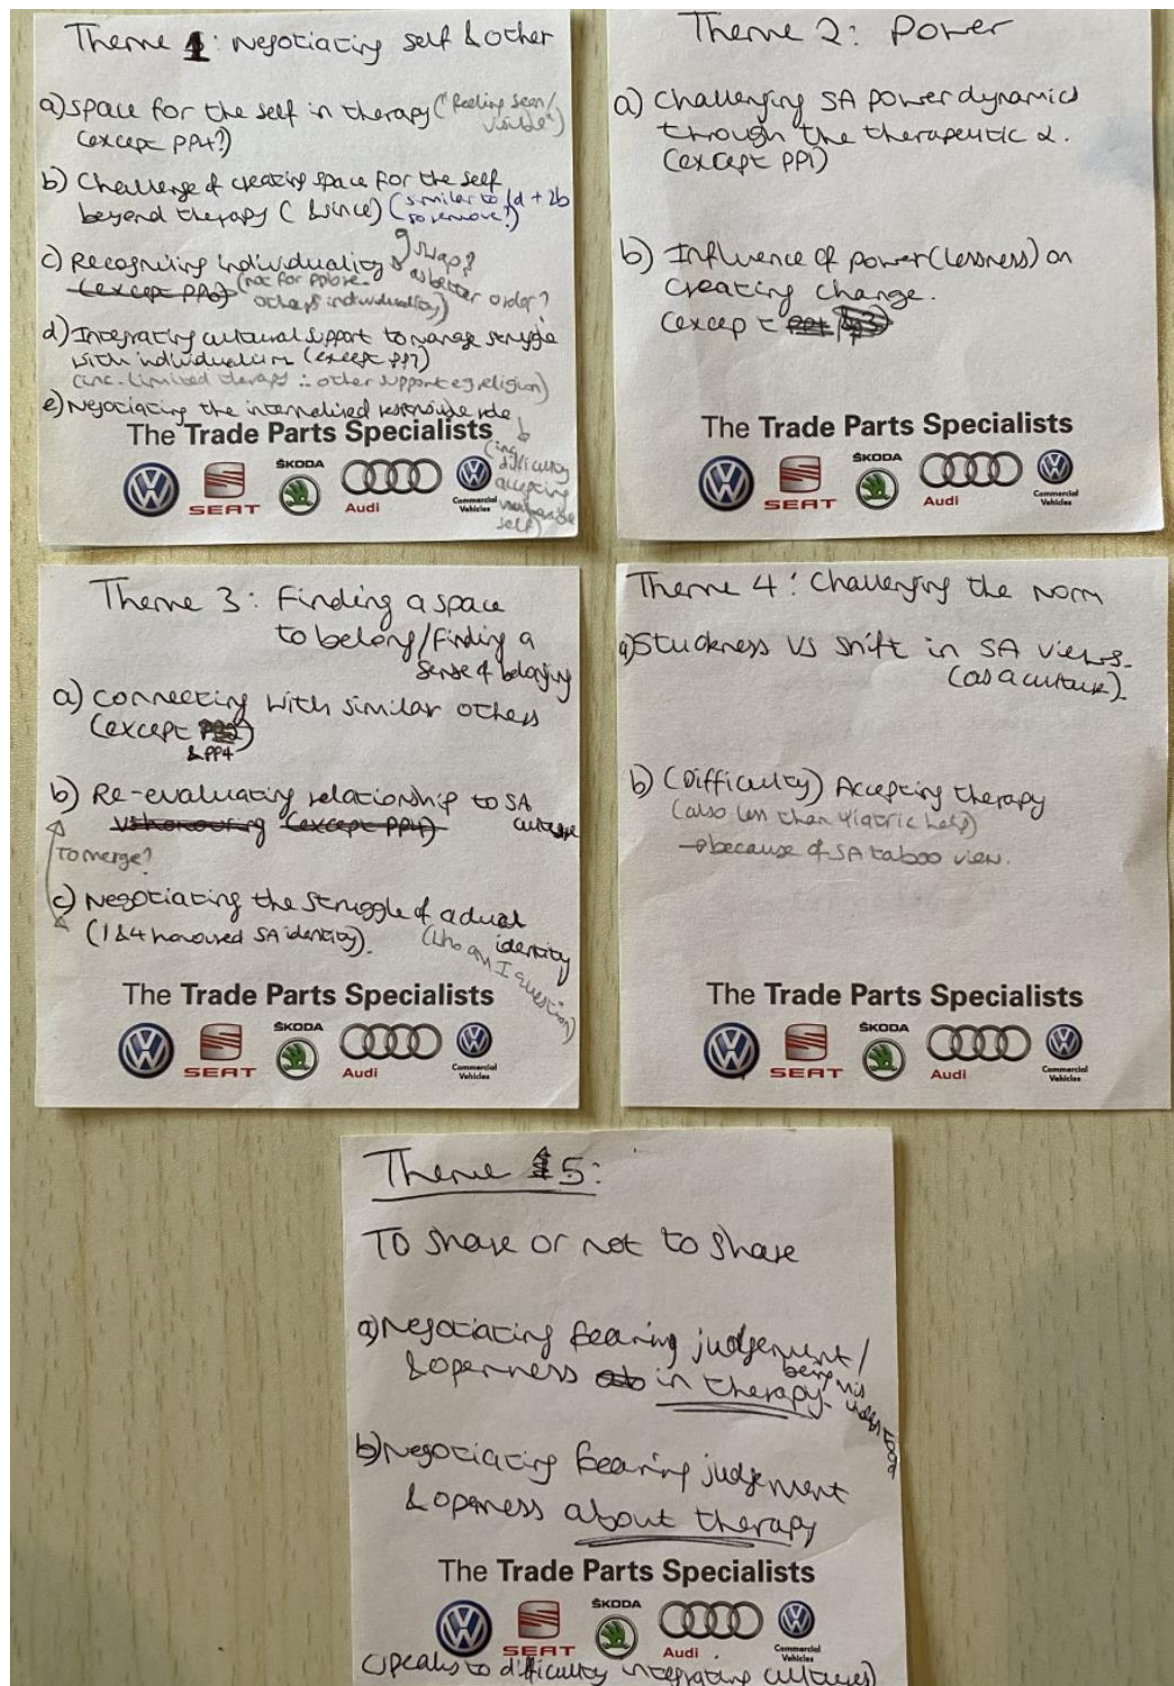 Theme 1: Negotiating self & other
a) Space for the self in therapy ("feeling seen/
visible")
(except PP4?)
b) Challenge of creating space for the self
beyond therapy ( & since) (similar to 1d + 2b
so remove?)
c) Recognising individuality
swap?
as better order?
(except PP6) (not for PP6 re
others individuality)
d) Integrating cultural support to manage struggle
with individualism (except PP7)
(inc. limited therapy ∴ other support eg religion)
e) Negotiating the internalised responsible role
(inc
difficulty
accepting
vulnerable
self)
The Trade Parts Specialists
SEAT
ŠKODA
Audi
Commercial
Vehicles
Theme 2: Power
a) Challenging SA power dynamics
through the therapeutic r.
(except PP1)
b) Influence of power(lessness) on
creating change.
(except
The Trade Parts Specialists
SEAT
ŠKODA
Audi
Commercial
Vehicles
Theme 3: Finding a space
to belong/finding a
sense of belonging
a) Connecting with similar others
(except
& PP4
b) Re-evaluating relationship to SA
culture
vs honouring (except PP4)
To merge?
c) Negotiating the struggle of a dual
identity
(1&4 honoured SA identity).
(who am I question)
The Trade Parts Specialists
SEAT
ŠKODA
Audi
Commercial
Vehicles
Theme 4: Challenging the norm
a) Stuckness VS Shift in SA views.
(as a culture).
b) (Difficulty) Accepting therapy
(also less than yiatric help)
→ because of SA taboo view.
The Trade Parts Specialists
SEAT
ŠKODA
Audi
Commercial
Vehicles
Theme 5:
To share or not to share
a) Negotiating fearing judgement/
being mis
understood
& openness in therapy.
b) Negotiating fearing judgement
& openness about therapy
The Trade Parts Specialists
SEAT
ŠKODA
Audi
Commercial
Vehicles
(speaks to difficulty integrating cultures)